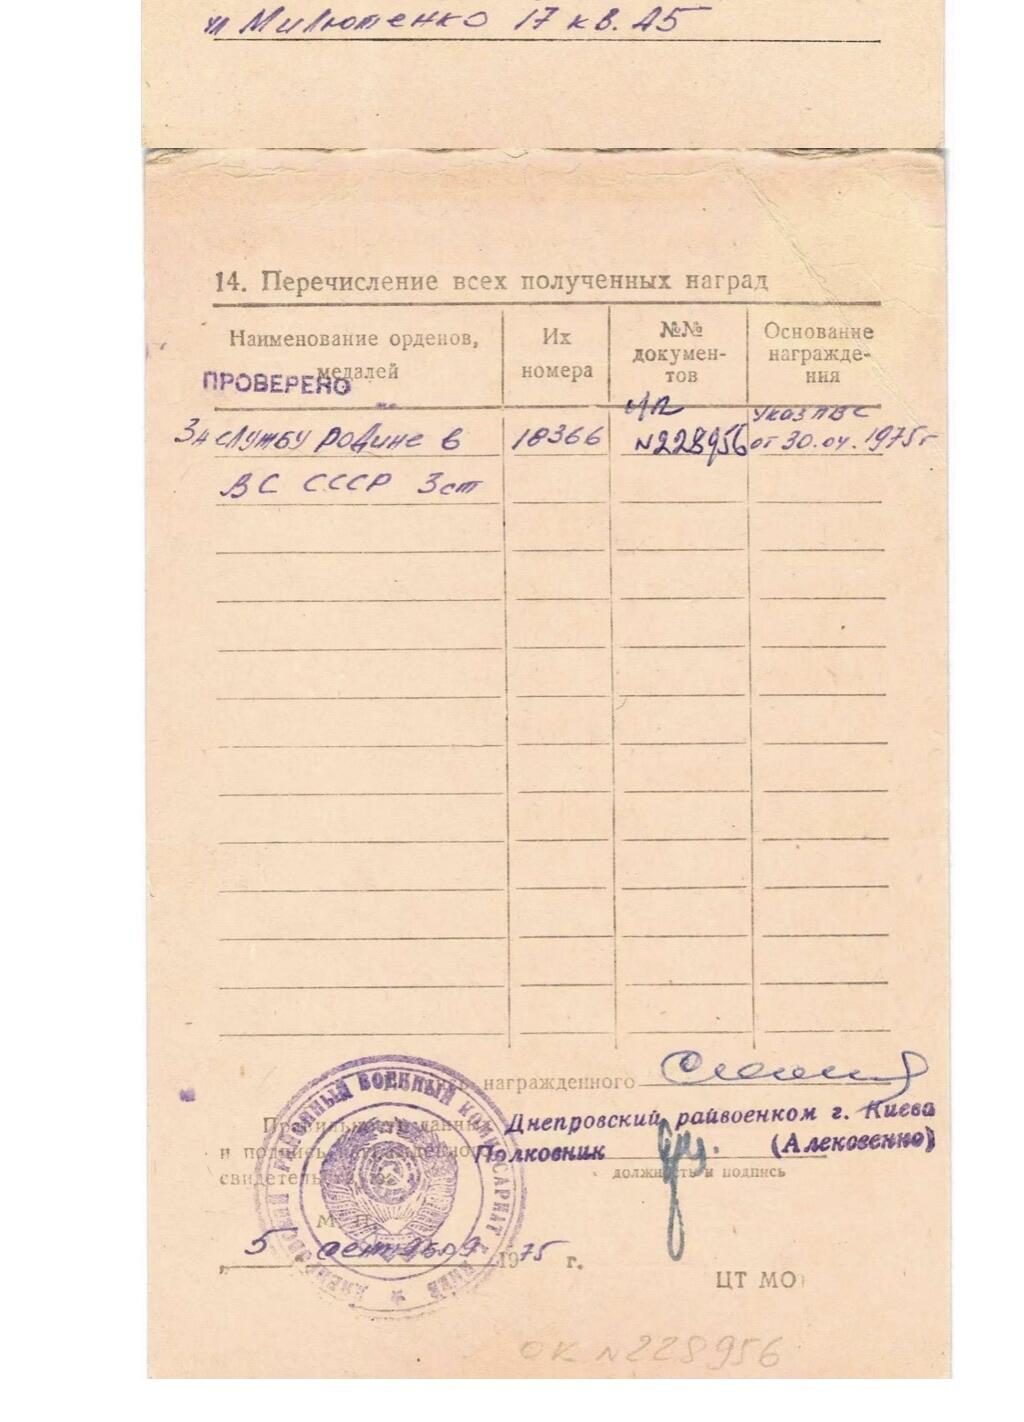 ул Милютенко 17 кв. 45
14. Перечисление всех полученных наград
Наименование орденов, медалей
Их номера
№№ докумен-тов
Основание награжде-ния
ПРОВЕРЕНО
За службу родине в
18366
о/к
№228956
Указ ПВС
от 30.04.1975г
ВС СССР 3ст
награжденного
Правильность данных
и подпись награжденного
свидетельствую
Днепровский райвоенком г. Киева
Полковник
(Алексеенко)
должность и подпись
РАЙОННЫЙ ВОЕННЫЙ КОМИССАРИАТ
М. П.
5 сентября 1975 г.
ЦТ МО
ОК №228956